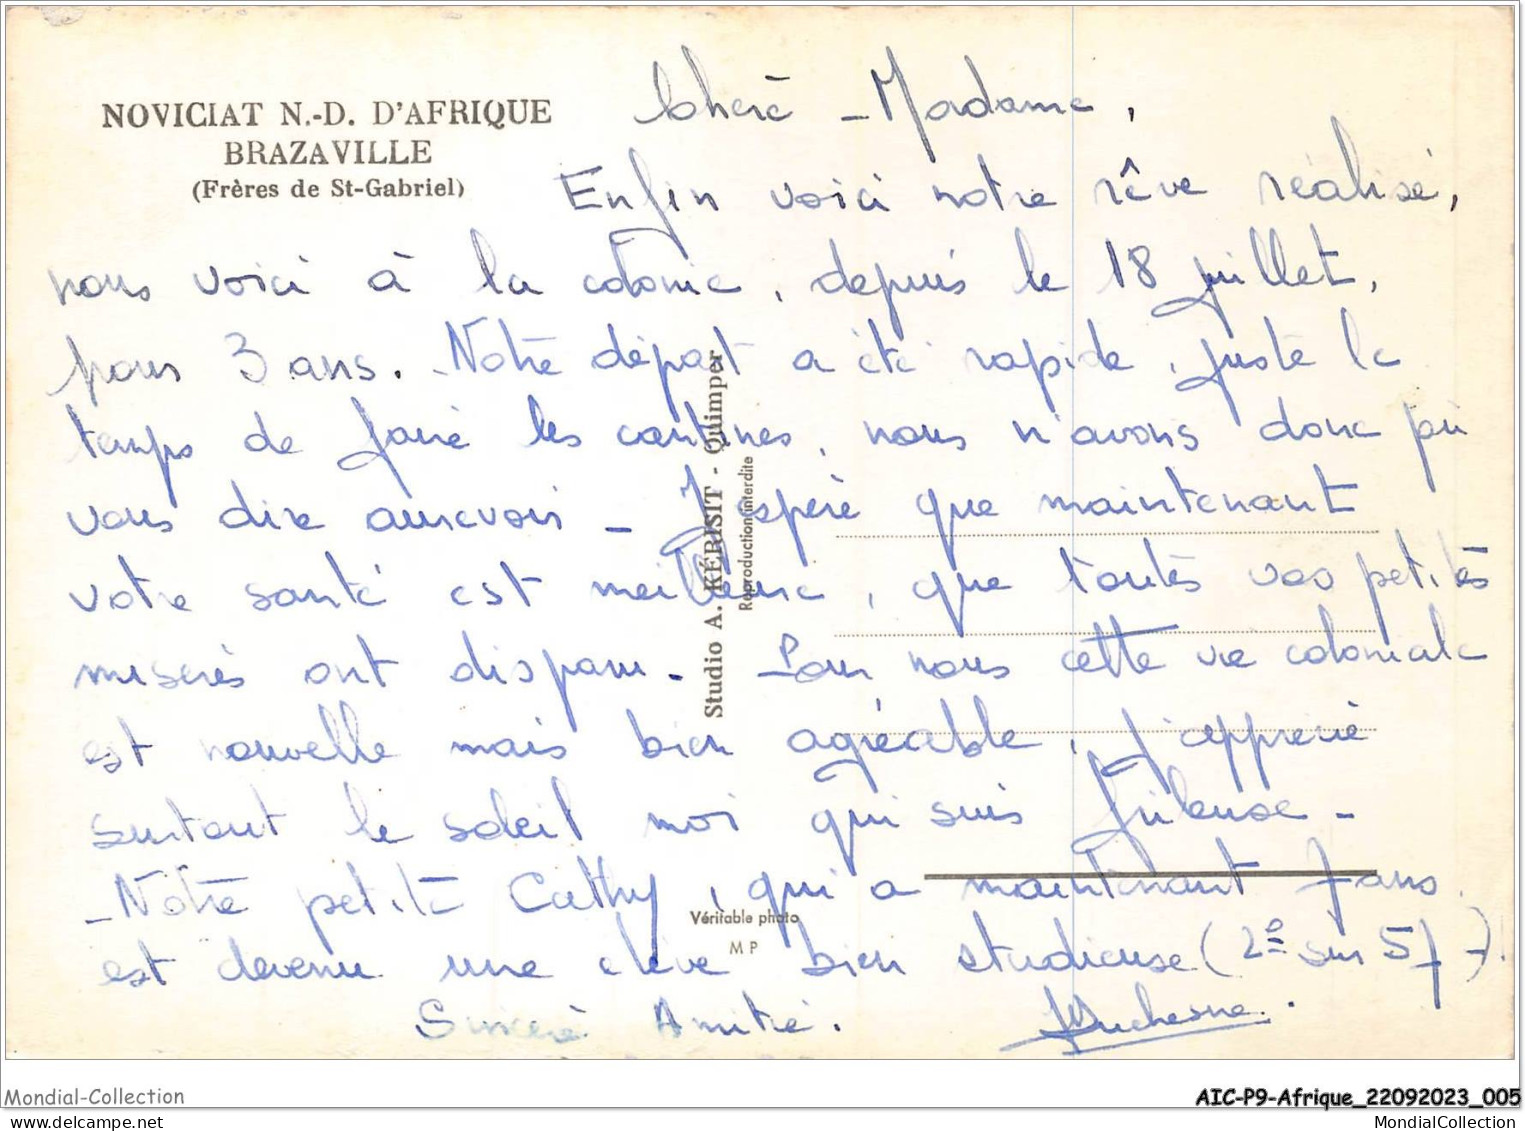 NOVICIAT N.-D. D'AFRIQUE
BRAZAVILLE
(Frères de St-Gabriel)
Chère - Madame,
Enfin voici notre rêve réalisé,
nous voici à la colonie, depuis le 18 juillet,
pour 3 ans. Notre départ a été rapide, juste le
temps de faire les cantines, nous n'avons donc pu
vous dire aurevoir - J'espère que maintenant
votre santé est meilleure, que toutes vos petites
misères ont disparu. Pour nous cette vie coloniale
est nouvelle mais bien agréable, j'apprécie
surtout le soleil moi qui suis frileuse -
- Notre petite Cathy, qui a maintenant 7 ans.
est devenu une élève bien studieuse (2e sur 57 -)!
Sincère Amitié.
Duchesne.
Studio A. KÉRISIT - Quimper
Reproduction interdite
Véritable photo
M P
Mondial-Collection
AIC-P9-Afrique_22092023_005
MondialCollection